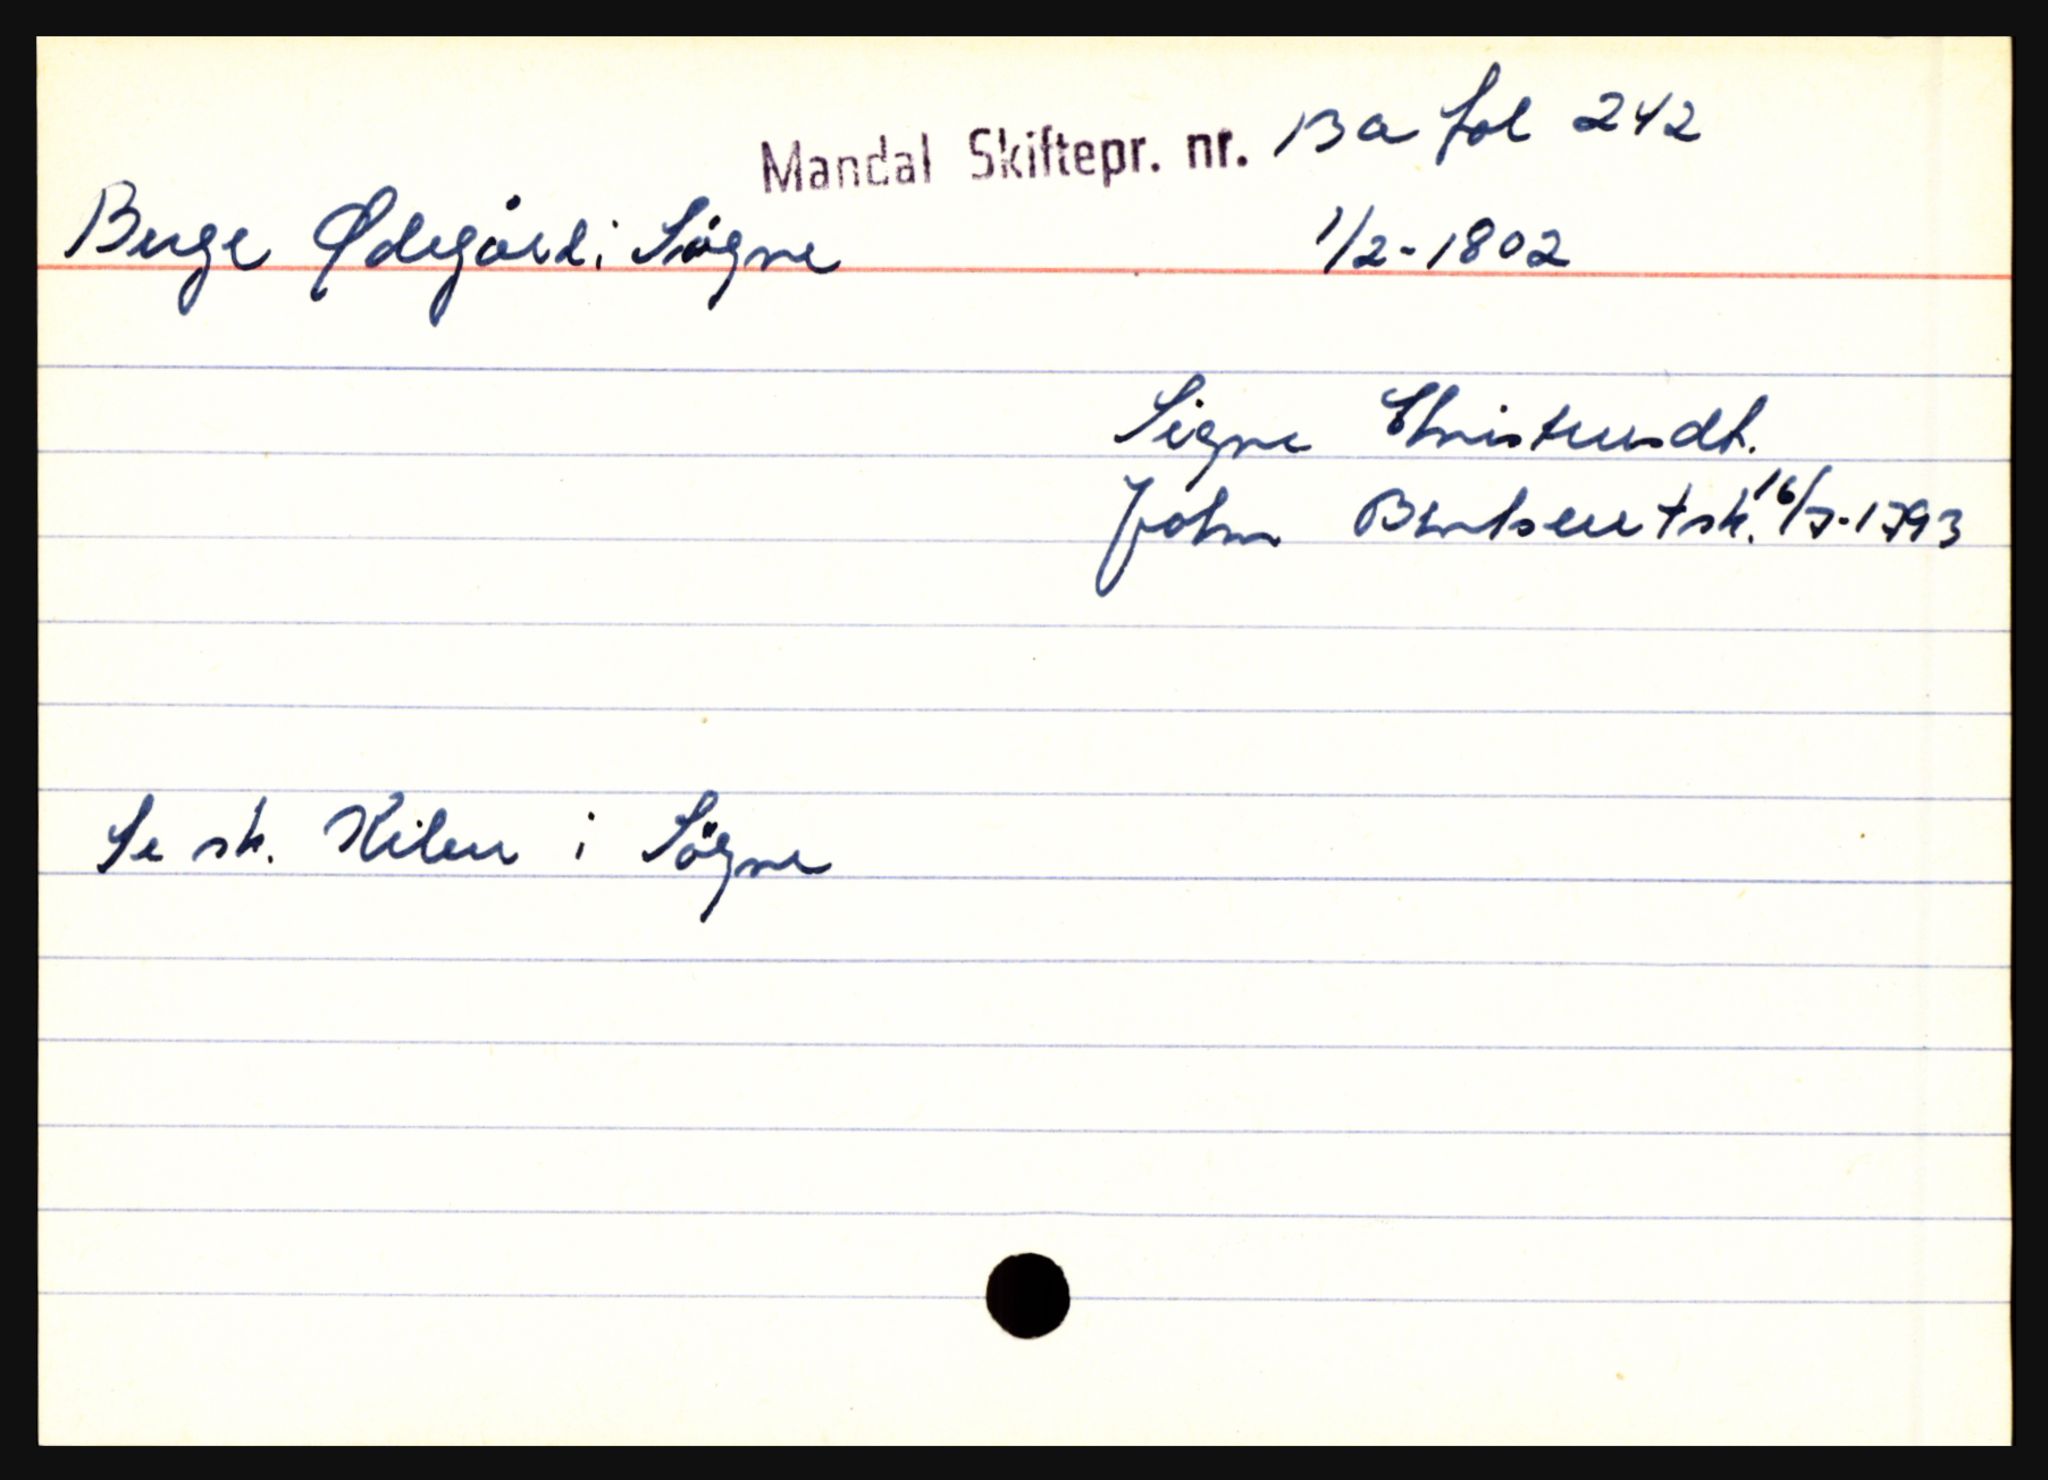 Mandal Skiftepr. nr. 13 a fol 242
Berge Ødegård i Søgne 1/2-1802
Signe Christensdt.
John Berntsen + sk. 16/7-1793
Se sk. Kilen i Søgne